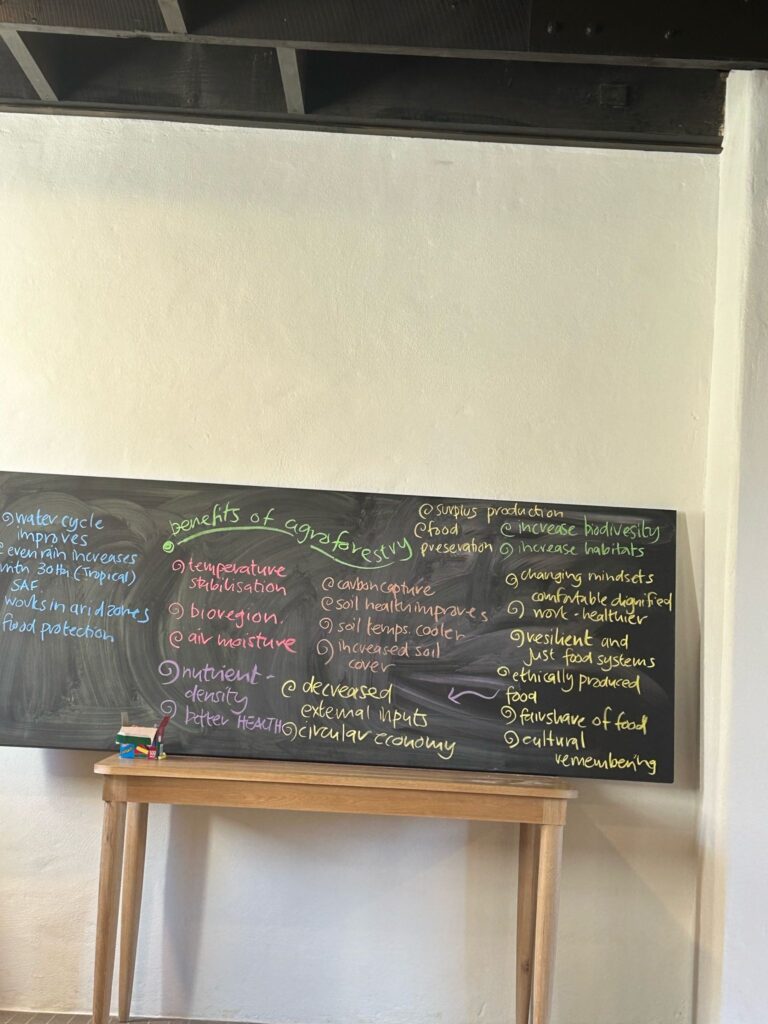 water cycle
improves
even rain increases
with 30th (Tropical)
SAF
works in arid zones
food protection
benefits of agroforestry
temperature
stabilisation
bioregion.
air moisture
nutrient -
density
better HEALTH
carbon capture
soil health improves
soil temps. cooler
increased soil
cover
decreased
external inputs
circular economy
surplus production
food
presevation
increase biodivesity
increase habitats
changing mindsets
comfortable dignified
work - healthier
resilient and
just food systems
ethically produced
food
fairshare of food
cultural
remembering